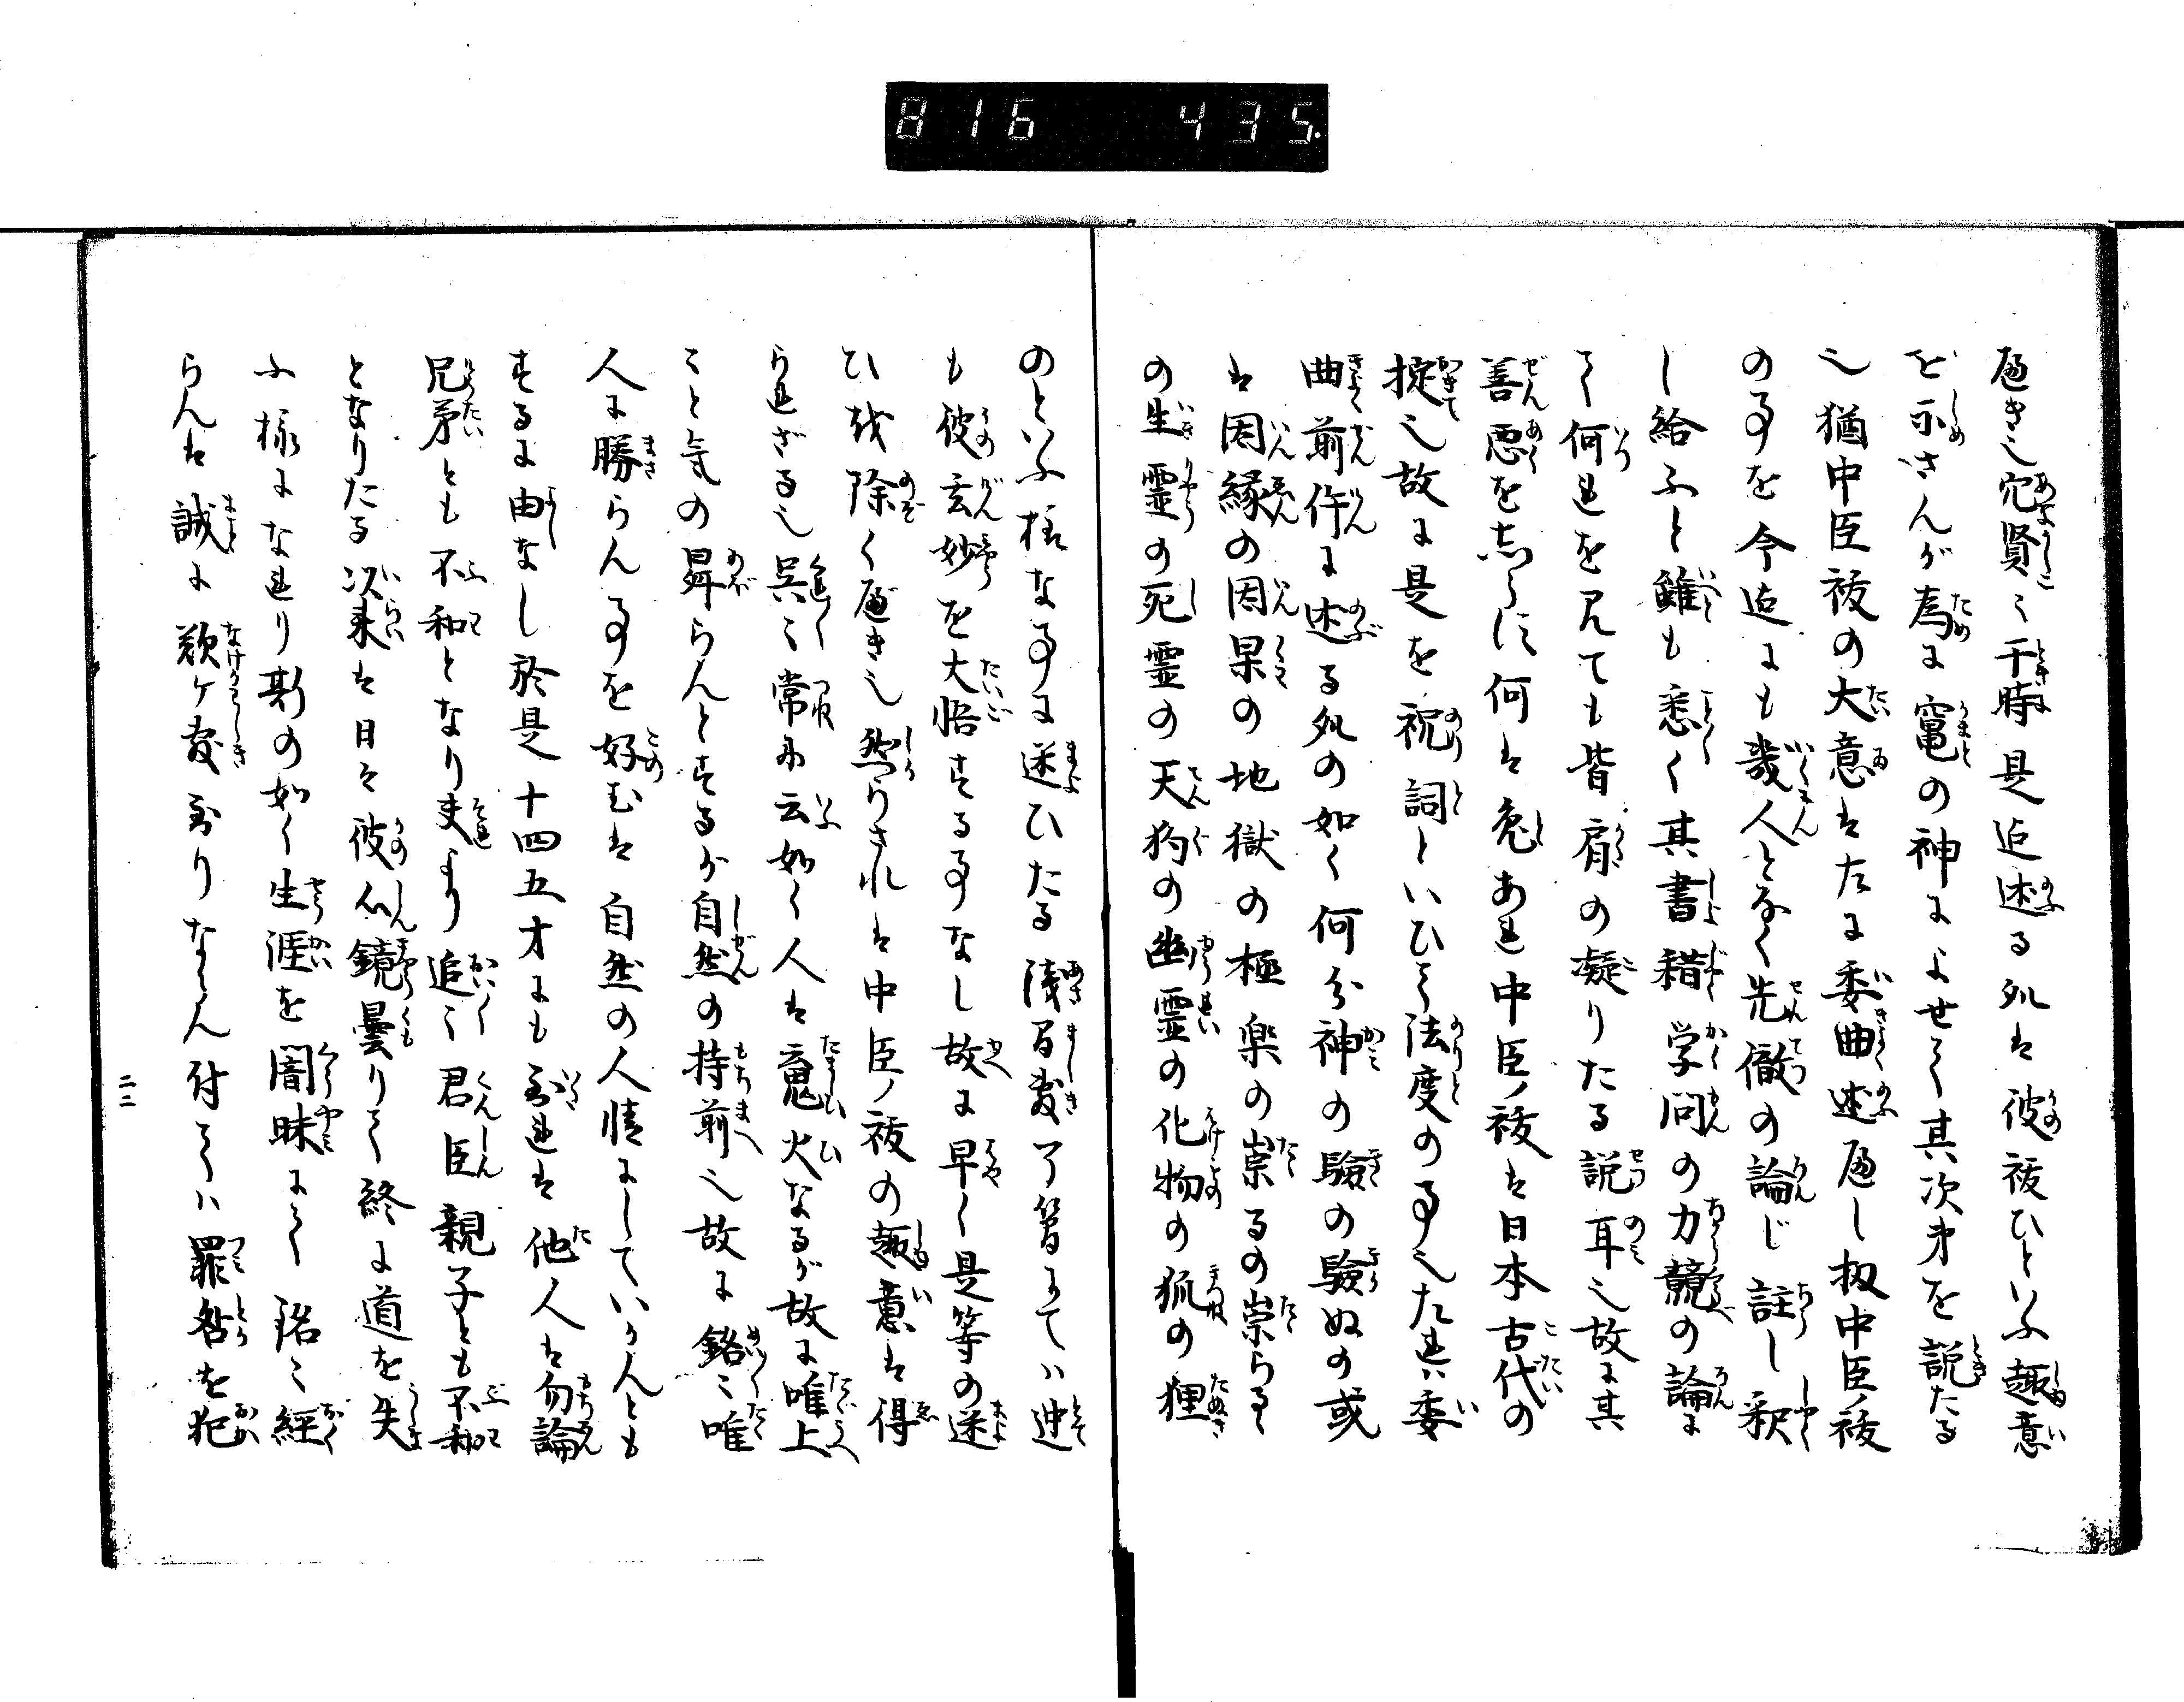 816 435.
べき也穴賢々于時是迄述る処は彼祓ひといふ趣意
を示さんが為に竈の神によせて其次第を説たる
也猶中臣祓の大意は左に委曲述べし扨中臣祓
の事を今迄にも幾人となく先徹の論じ註し釈
し給ふと雖も悉く其書籍学問の力競の論に
て何れを見ても皆肩の凝りたる説耳也故に其
善悪をしらず何は兎あれ中臣祓は日本古代の
掟也故に是を祝詞といひて法度の事也左れば委
曲前件に述る処の如く何分神の験の験ぬの或
は因縁の因果の地獄の極楽の祟るの祟らるゝ
の生霊の死霊の天狗の幽霊の化物の狐の狸
のといふ様なる事に迷ひたる浅間敷了簡にては迚
も彼玄妙を大悟する事なし故に早く是等の迷
ひを除くべき也然りされは中臣祓の趣意は得
られざる也呉々常に云如く人は魂火なるが故に唯上
こと気の昇らんとするが自然の持前也故に銘々唯
人に勝らん事を好むは自然の人情にしていかんとも
するに由なし於是十四五才にも至れは他人は勿論
兄弟とも不和となり夫より追々君臣親子とも不和
となりたる次来は日々彼心鏡曇りて終に道を失
ふ様になれり斯の如く生涯を闇昧にて 経
らんは誠に歎ヶ敷至りならん付ては罪咎を犯
二二